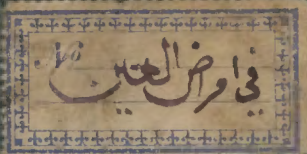 No
في امراض العين